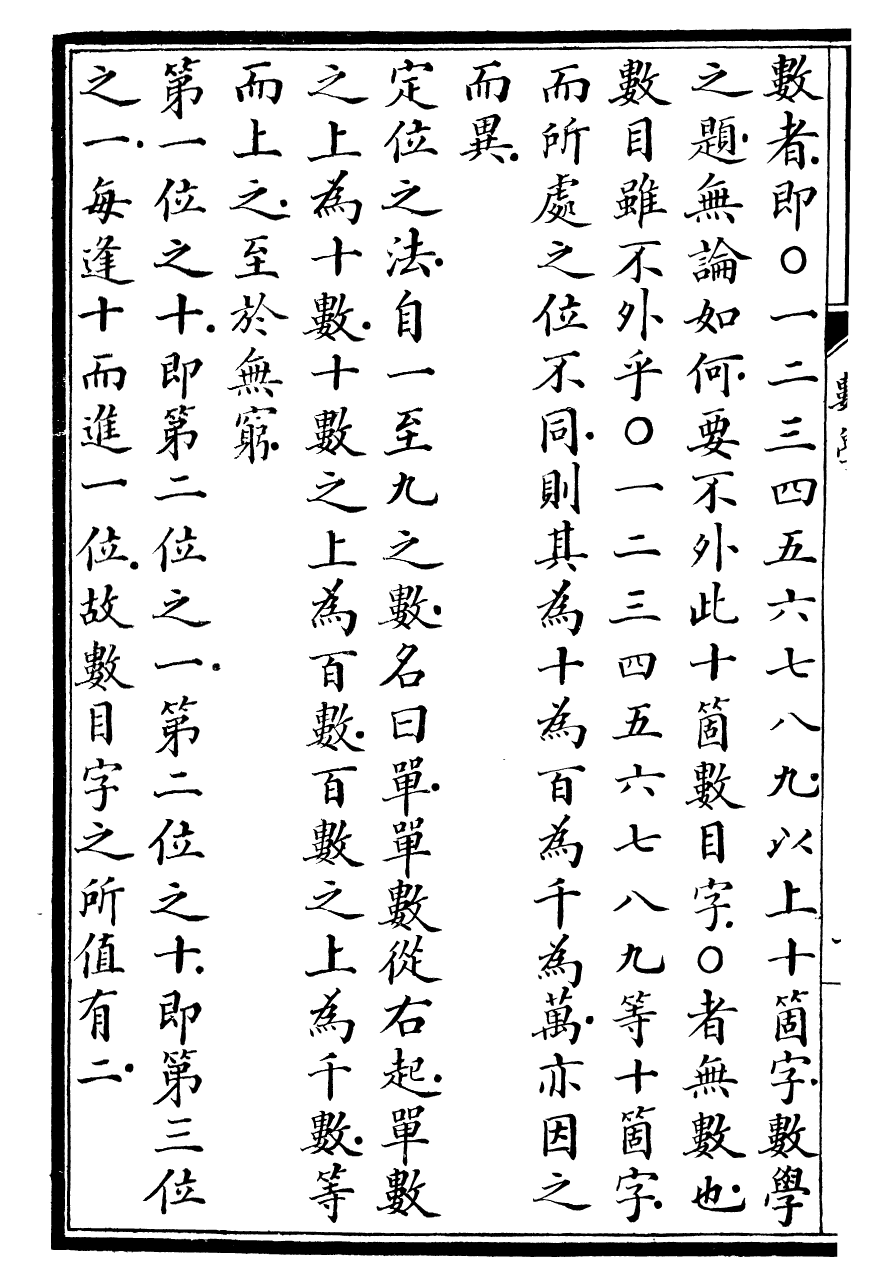 數者.即〇一二三四五六七八九.以上十箇字.數學
之題.無論如何.要不外此十箇數目字.〇者無數也.
數目雖不外乎〇一二三四五六七八九等十箇字.
而所處之位不同.則其為十為百為千為萬.亦因之
而異.
定位之法.自一至九之數.名曰單.單數從右起.單數
之上為十數.十數之上為百數.百數之上為千數.等
而上之.至於無窮.
第一位之十.即第二位之一.第二位之十.即第三位
之一.每逢十而進一位.故數目字之所值有二.